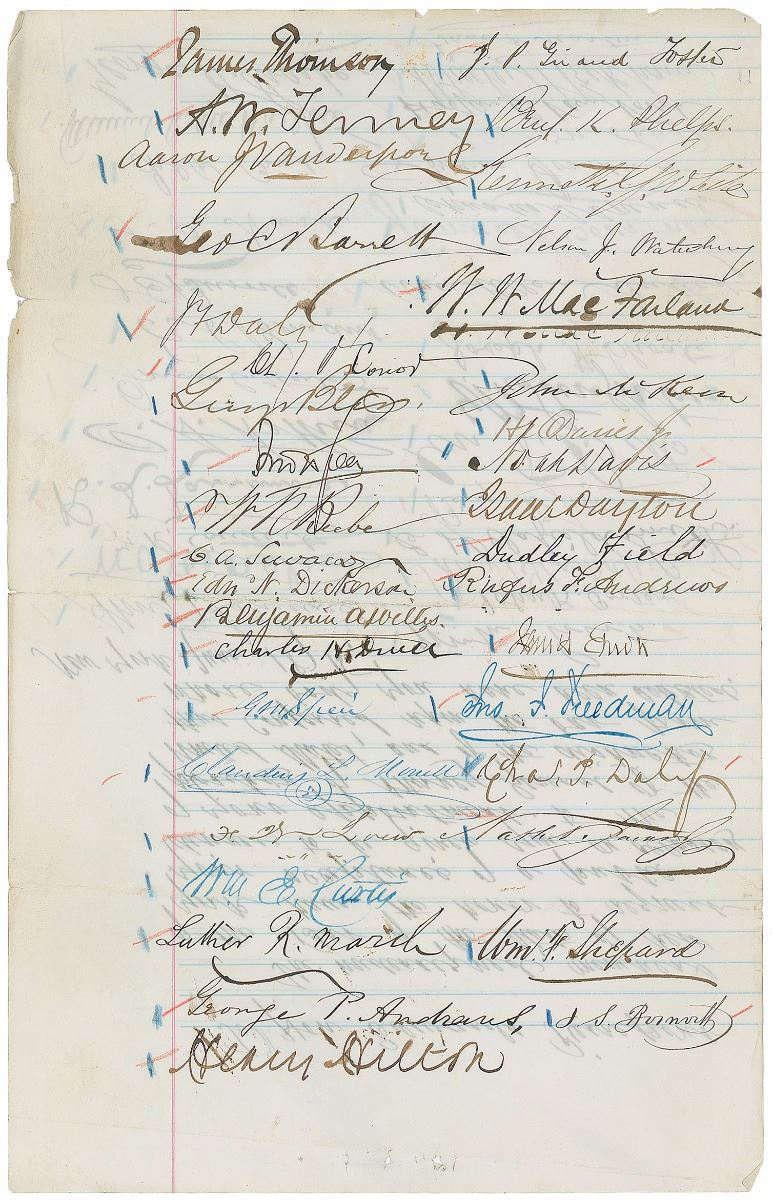 James Thomson
J. P. Giraud Foster
A. W. Tenney
Benj. K. Phelps.
Aaron J Vanderpoel
Kenneth G. White
Geo C Barrett
Nelson J. Waterbury
W. W. MacFarland
J F Daly
Ch. O'Conor
John McKeon
H E Davies Jr
Noah Davis
W R Beebe
Isaac Dayton
Dudley Field
Edw N. Dickerson
Rufus F. Andrews
Benjamin A Willis.
Charles H
G. M. Speir
Jno J. Freedman
Claudius L. Monell
Chas. P. Daly
Loew
Wm E. Curtis
Luther R. Marsh
Wm. F. Shepard
George P. Andrews,
J S. Bosworth
Henry Hilton